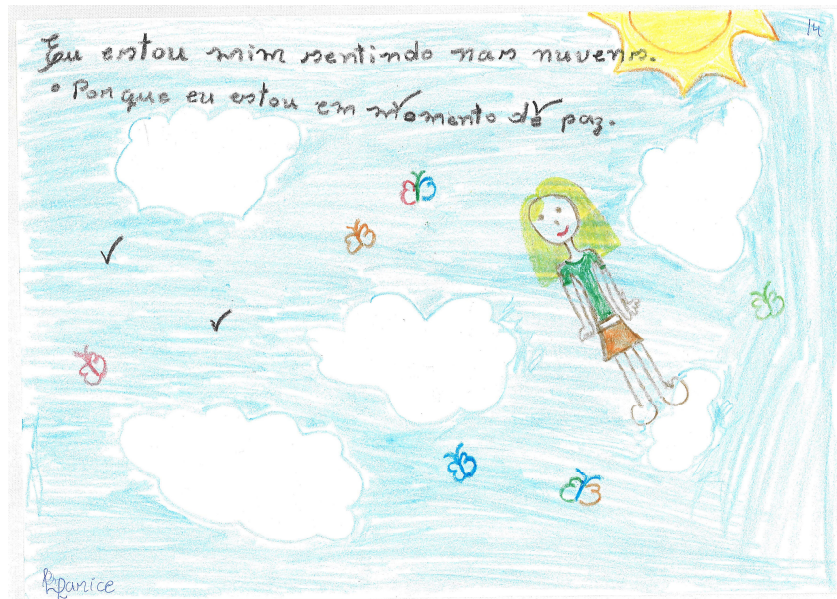 14
Eu estou mim sentindo nas nuvens.
• Porque eu estou em momento de paz.